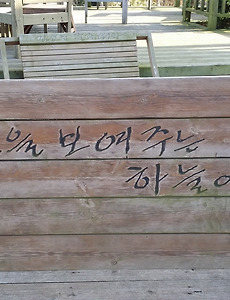 을 보여주는
하늘